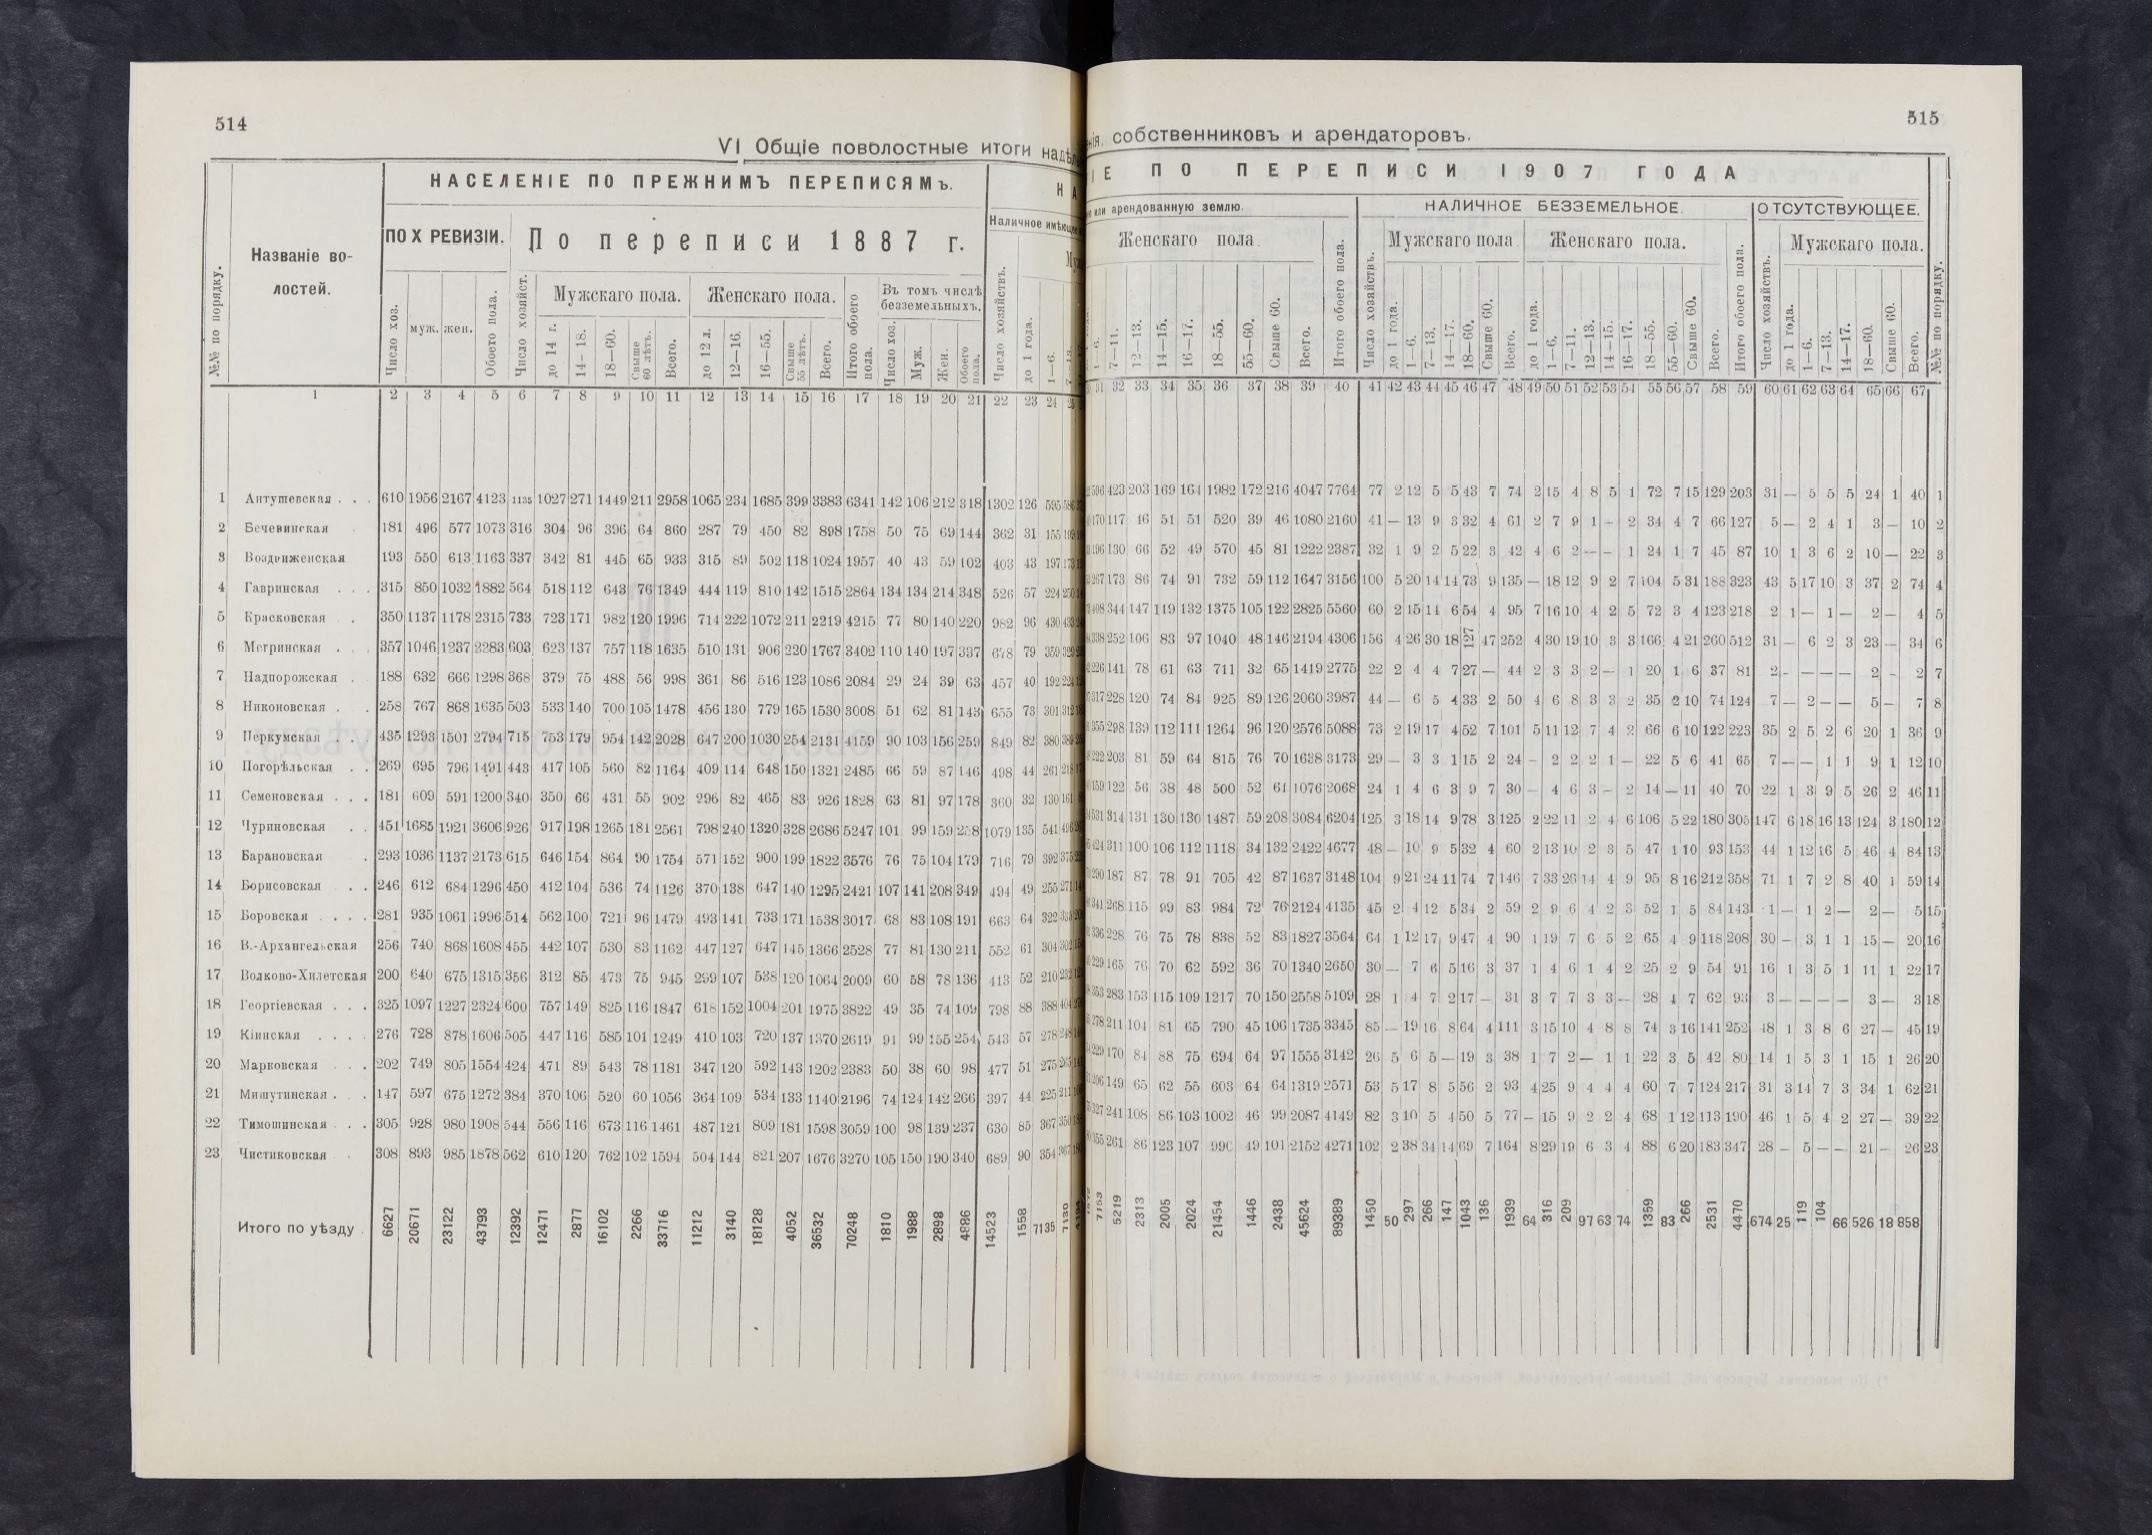 514
VI Общіе поволостные итоги надѣль
НАСЕЛЕНІЕ ПО ПРЕЖНИМЪ ПЕРЕПИСЯМЪ.
НА
Наличное имѣющее
ПО X РЕВИЗІИ.
По переписи 1887 г.
Названіе во-
лостей.
№№ по порядку.
Число хоз.
муж.
жен.
Обоего пола.
Число хозяйст.
Мужскаго пола.
до 14 г.
14—18.
18—60.
Свыше 60 лѣтъ.
Всего.
Женскаго пола.
до 12 л.
12—16.
16—55.
Свыше 55 лѣтъ.
Всего.
Итого обоего пола.
Въ томъ числѣ безземельныхъ.
Число хоз.
Муж.
Жен.
Обоего пола.
Число хозяйствъ.
до 1 года.
1—6.
1 2 3 4 5 6 7 8 9 10 11 12 13 14 15 16 17 18 19 20 21 22 23 24
1 Антушевская . . . 610 1956 2167 4123 1135 1027 271 1449 211 2958 1065 234 1685 399 3383 6341 142 106 212 318 1302 126 595
2 Бечевинская 181 496 577 1073 316 304 96 396 64 860 287 79 450 82 898 1758 50 75 69 144 362 31 155
3 Воздвиженская 193 550 613 1163 337 342 81 445 65 933 315 89 502 118 1024 1957 40 43 59 102 403 43 197
4 Гавринская . . . 315 850 1032 1882 564 518 112 643 76 1349 444 119 810 142 1515 2864 134 134 214 348 526 57 224
5 Красковская . . 350 1137 1178 2315 733 723 171 982 120 1996 714 222 1072 211 2219 4215 77 80 140 220 982 96 430
6 Мегринская . . 357 1046 1237 2283 603 623 137 757 118 1635 510 131 906 220 1767 3402 110 140 197 337 678 79 359
7 Надпорожская . 188 632 666 1298 368 379 75 488 56 998 361 86 516 123 1086 2084 29 24 39 63 457 40 192
8 Никоновская . . 258 767 868 1635 503 533 140 700 105 1478 456 130 779 165 1530 3008 51 62 81 143 655 73 301
9 Перкумская . . 435 1293 1501 2794 715 753 179 954 142 2028 647 200 1030 254 2131 4159 90 103 156 259 849 82 380
10 Погорѣльская . . 269 695 796 1491 443 417 105 560 82 1164 409 114 648 150 1321 2485 66 59 87 146 498 44 261
11 Семеновская . . . 181 609 591 1200 340 350 66 431 55 902 296 82 465 83 926 1828 63 81 97 178 360 32 130
12 Чуриновская . . 451 1685 1921 3606 926 917 198 1265 181 2561 798 240 1320 328 2686 5247 101 99 159 258 1079 135 541
13 Барановская . 293 1036 1137 2173 615 646 154 864 90 1754 571 152 900 199 1822 3576 76 75 104 179 716 79 392
14 Борисовская . . 246 612 684 1296 450 412 104 536 74 1126 370 138 647 140 1295 2421 107 141 208 349 494 49 255
15 Боровская . . . . 281 935 1061 1996 514 562 100 721 96 1479 493 141 733 171 1538 3017 68 83 108 191 663 64 322
16 В.-Архангельская 256 740 868 1608 455 442 107 530 83 1162 447 127 647 145 1366 2528 77 81 130 211 552 61 304
17 Волково-Хилетская 200 640 675 1315 356 312 85 473 75 945 299 107 538 120 1064 2009 60 58 78 136 413 52 210
18 Георгіевская . . . 325 1097 1227 2324 600 757 149 825 116 1847 618 152 1004 201 1975 3822 49 35 74 109 798 88 388
19 Кіинская . . . . 276 728 878 1606 505 447 116 585 101 1249 410 103 720 137 1370 2619 91 99 155 254 543 57 278
20 Марковская . . . 202 749 805 1554 424 471 89 543 78 1181 347 120 592 143 1202 2383 50 38 60 98 477 51 275
21 Мишутинская . . 147 597 675 1272 384 370 106 520 60 1056 364 109 534 133 1140 2196 74 124 142 266 397 44 225
22 Тимошинская . . 305 928 980 1908 544 556 116 673 116 1461 487 121 809 181 1598 3059 100 98 139 237 630 85 367
23 Чистиковская . 308 893 985 1878 562 610 120 762 102 1594 504 144 821 207 1676 3270 105 150 190 340 689 90 354
Итого по уѣзду . 6627 20671 23122 43793 12392 12471 2877 16102 2266 33716 11212 3140 18128 4052 36532 70248 1810 1988 2898 4886 14523 1558 7135
515
нія, собственниковъ и арендаторовъ.
ІЕ ПО ПЕРЕПИСИ 1907 ГОДА
или арендованную землю.
НАЛИЧНОЕ БЕЗЗЕМЕЛЬНОЕ.
ОТСУТСТВУЮЩЕЕ.
Женскаго пола.
7—11.
12—13.
14—15.
16—17.
18—55.
55—60.
Свыше 60.
Всего.
Итого обоего пола.
Число хозяйствъ.
Мужскаго пола.
до 1 года.
1—6.
7—13.
14—17.
18—60.
Свыше 60.
Всего.
Женскаго пола.
до 1 года.
1—6.
7—11.
12—13.
14—15.
16—17.
18—55.
55—60.
Свыше 60.
Всего.
Итого обоего пола.
Число хозяйствъ.
Мужскаго пола.
до 1 года.
1—6.
7—13.
14—17.
18—60.
Свыше 60.
Всего.
№№ по порядку.
31 32 33 34 35 36 37 38 39 40 41 42 43 44 45 46 47 48 49 50 51 52 53 54 55 56 57 58 59 60 61 62 63 64 65 66 67
596 423 203 169 164 1982 172 216 4047 7764 77 2 12 5 5 43 7 74 2 15 4 8 5 1 72 7 15 129 203 31 — 5 5 5 24 1 40 1
170 117 46 51 51 520 39 46 1080 2160 41 — 13 9 3 32 4 61 2 7 9 1 — 2 34 4 7 66 127 5 — 2 4 1 3 — 10 2
196 130 66 52 49 570 45 81 1222 2387 32 1 9 2 5 22 3 42 4 6 2 — — 1 24 1 7 45 87 10 1 3 6 2 10 — 22 3
267 173 86 74 91 732 59 112 1647 3156 100 5 20 14 14 73 9 135 — 18 12 9 2 7 104 5 31 188 323 43 5 17 10 3 37 2 74 4
408 344 147 119 132 1375 105 122 2825 5560 60 2 15 14 6 54 4 95 7 16 10 4 2 5 72 3 4 123 218 2 1 — 1 — 2 — 4 5
338 252 106 83 97 1040 48 146 2194 4306 156 4 26 30 18 127 47 252 4 30 19 10 3 3 166 4 21 260 512 31 — 6 2 3 23 — 34 6
226 141 78 61 63 711 32 65 1419 2775 22 2 4 4 7 27 — 44 2 3 3 2 — 1 20 1 6 37 81 2 — — — — 2 — 2 7
317 228 120 74 84 925 89 126 2060 3987 44 — 6 5 4 33 2 50 4 6 8 3 3 2 35 2 10 74 124 7 — 2 — — 5 — 7 8
355 298 139 112 111 1264 96 120 2576 5088 73 2 19 17 4 52 7 101 5 11 12 7 4 2 66 6 10 122 223 35 2 5 2 6 20 1 36 9
222 203 81 59 64 815 76 70 1638 3173 29 — 3 3 1 15 2 24 — 2 2 2 1 — 22 5 6 41 65 7 — — 1 1 9 1 12 10
159 122 56 38 48 500 52 61 1076 2068 24 1 4 6 3 9 7 30 — 4 6 3 — 2 14 — 11 40 70 22 1 3 9 5 26 2 46 11
531 314 131 130 130 1487 59 208 3084 6204 125 3 18 14 9 78 3 125 2 22 11 2 4 6 106 5 22 180 305 147 6 18 16 13 124 3 180 12
424 311 100 106 112 1118 34 132 2422 4677 48 — 10 9 5 32 4 60 2 13 10 2 3 5 47 1 10 93 153 44 1 12 16 5 46 4 84 13
290 187 87 78 91 705 42 87 1637 3148 104 9 21 24 11 74 7 146 7 33 26 14 4 9 95 8 16 212 358 71 1 7 2 8 40 1 59 14
341 268 115 99 83 984 72 76 2124 4135 45 2 4 12 5 34 2 59 2 9 6 4 2 3 52 1 5 84 143 1 — 1 2 — 2 — 5 15
336 228 76 75 78 838 52 83 1827 3564 64 1 12 17 9 47 4 90 1 19 7 6 5 2 65 4 9 118 208 30 — 3 1 1 15 — 20 16
229 165 76 70 62 592 36 70 1340 2650 30 — 7 6 5 16 3 37 1 4 6 1 4 2 25 2 9 54 91 16 1 3 5 1 11 1 22 17
353 283 153 115 109 1217 70 150 2558 5109 28 1 4 7 2 17 — 31 3 7 7 3 3 — 28 4 7 62 93 3 — — — — 3 — 3 18
278 211 104 81 65 790 45 106 1735 3345 85 — 19 16 8 64 4 111 3 15 10 4 8 8 74 3 16 141 252 48 1 3 8 6 27 — 45 19
229 170 84 88 75 694 64 97 1555 3142 26 5 6 5 — 19 3 38 1 7 2 — 1 1 22 3 5 42 80 14 1 5 3 1 15 1 26 20
206 149 65 62 55 603 64 64 1319 2571 53 5 17 8 5 56 2 93 4 25 9 4 4 4 60 7 7 124 217 31 3 14 7 3 34 1 62 21
327 241 108 86 103 1002 46 99 2087 4149 82 3 10 5 4 50 5 77 — 15 9 2 2 4 68 1 12 113 190 46 1 5 4 2 27 — 39 22
355 261 86 123 107 990 49 101 2152 4271 102 2 38 34 14 69 7 164 8 29 19 6 3 4 88 6 20 183 347 28 — 5 — — 21 — 26 23
7153 5219 2313 2005 2024 21454 1446 2438 45624 89389 1450 50 297 266 147 1043 136 1939 64 316 209 97 63 74 1359 83 266 2531 4470 674 25 119 104 66 526 18 858